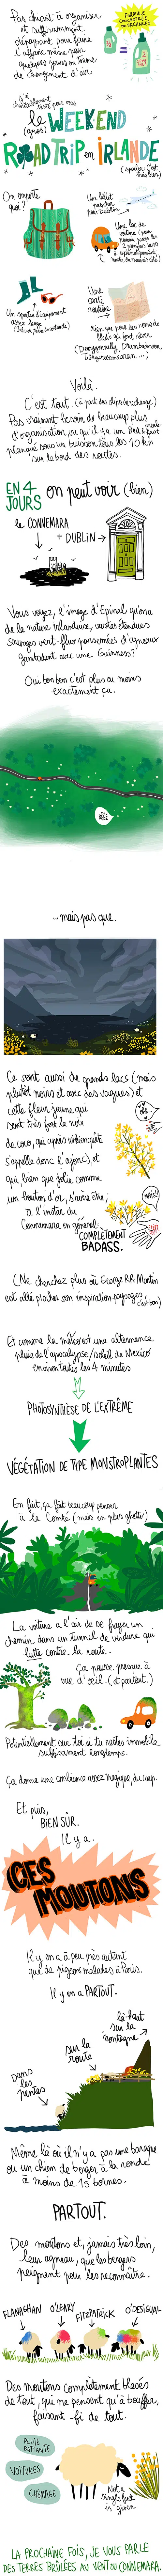 Pas chiant à organiser
et suffisamment
dépaysant pour faire
l'affaire même pour
quelques jours en terme
de changement d'air
FORMULE
CONCENTRÉE
en VACANCES
pour vous
le WEEKEND
(gros)
ROADTRIP en IRLANDE
(spoiler: c'est
très bien)
On emporte
quoi?
Un billet
pas cher
pour Dublin
Une loc de
voiture
Une paire d'équipement
assez large
Une
carte
routière
Rien que pour les noms de
bleds qui font rêver
Voilà.
C'est tout. (à part des slips de rechange)
Pas vraiment besoin de beaucoup plus
d'organisation, vu qu'il y a un B&B
planqué sous un buisson tous les 10 km
sur le bord des routes.
EN 4
JOURS
on peut voir (bien)
le CONNEMARA
+ DUBLIN
Vous voyez, l'image d'Epinal qu'on a
de la nature irlandaise, vastes étendues
sauvages vert-fluo parsemées d'agneaux
gambadant avec une Guinness?
Oui bon ben c'est plus ou moins
exactement ça.
BÊÊÊ
... mais pas que.
Ce sont aussi de grands lacs (mais
plutôt noirs et avec des vagues) et
cette fleur jaune, qui
sent très fort la noix
de coco, qui après
s'appelle donc l'ajonc, et
qui, bien que jolie comme
un bouton d'or, s'avère être,
à l'instar du
Connemara en général:
COMPLÈTEMENT
BADASS.
(Ne cherchez plus où George RR Martin
est allé pêcher son inspiration paysages,
c'est bon)
Et comme la météo est une alternance
pluie de l'apocalypse/soleil de Mexico
environ toutes les 4 minutes
PHOTOSYNTHÈSE DE L'EXTRÊME
VÉGÉTATION DE TYPE MONSTROPLANTES
En fait, ça fait beaucoup penser
à la Comté (mais en plus ghetto)
La voiture a l'air de se frayer un
chemin dans un tunnel de verdure qui
lutte contre la route.
Ça pousse presque à
vue d'œil (et partout.)
Potentiellement sur toi si tu restes immobile
suffisamment longtemps.
Ça donne une ambiance assez magique, du coup.
Et puis,
BIEN SÛR.
Il y a.
CES
MOUTONS
Il y en a à peu près autant
que de pigeons malades à Paris.
Il y en a PARTOUT.
là-haut
sur la
montagne
sur la
route
Dans
les
pentes
Même là où il n'y a pas une baraque
ou un chien de berger à la ronde
à moins de 15 bornes.
PARTOUT.
Des moutons et, jamais très loin,
leur agneau, que les bergers
peignent pour les reconnaître.
FLANAGHAN
O'LEARY
FITZPATRICK
O'DESIGUAL
Des moutons complètement blasés
de tout, qui ne pensent qu'à bouffer,
faisant fi de tout.
PLUIE
BATTANTE
VOITURES
CHÔMAGE
Not a
single fuck
is given
LA PROCHAINE FOIS, JE VOUS PARLE
DES TERRES BRÛLÉES AU VENT DU CONNEMARA.